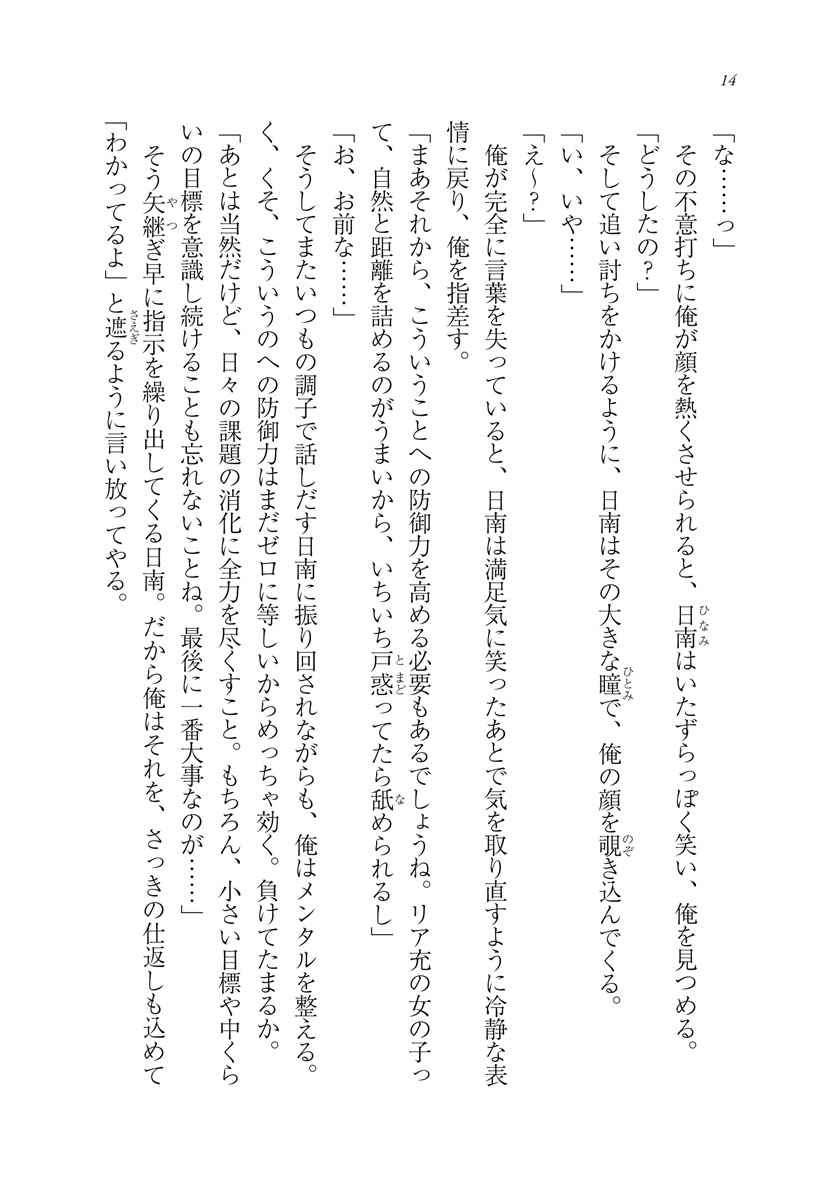 14
「な……っ」
　その不意打ちに俺が顔を熱くさせられると、日南はいたずらっぽく笑い、俺を見つめる。
「どうしたの？」
　そして追い討ちをかけるように、日南はその大きな瞳で、俺の顔を覗き込んでくる。
「い、いや……」
「え～？」
　俺が完全に言葉を失っていると、日南は満足気に笑ったあとで気を取り直すように冷静な表
情に戻り、俺を指差す。
「まあそれから、こういうことへの防御力を高める必要もあるでしょうね。リア充の女の子っ
て、自然と距離を詰めるのがうまいから、いちいち戸惑ってたら舐められるし」
「お、お前な……」
　そうしてまたいつもの調子で話しだす日南に振り回されながらも、俺はメンタルを整える。
く、くそ、こういうのへの防御力はまだゼロに等しいからめっちゃ効く。負けてたまるか。
「あとは当然だけど、日々の課題の消化に全力を尽くすこと。もちろん、小さい目標や中くら
いの目標を意識し続けることも忘れないことね。最後に一番大事なのが……」
　そう矢継ぎ早に指示を繰り出してくる日南。だから俺はそれを、さっきの仕返しも込めて
「わかってるよ」と遮るように言い放ってやる。